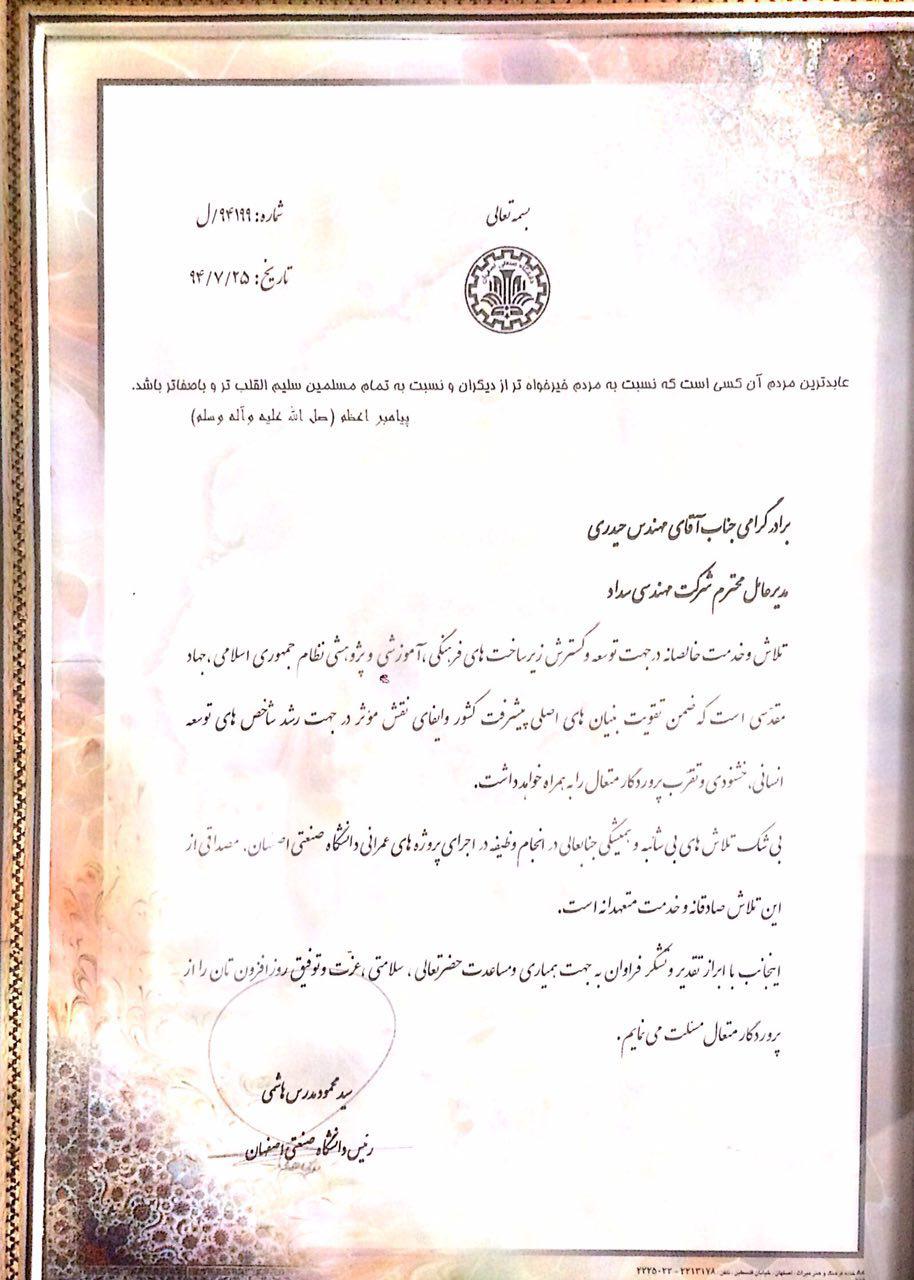 بسمه تعالی
شماره: ۹۴۱۹۹/ل
تاریخ: ۹۴/۷/۲۵
دانشگاه صنعتی اصفهان
عابدترین مردم آن کسی است که نسبت به مردم خیرخواه تر از دیگران و نسبت به تمام مسلمین سلیم القلب تر و باصفاتر باشد.
پیامبر اعظم (صل الله علیه وآله وسلم)
برادر گرامی جناب آقای مهندس حیدری
مدیرعامل محترم شرکت مهندسی سداد
تلاش و خدمت خالصانه در جهت توسعه و گسترش زیرساخت های فرهنگی، آموزشی و پژوهشی نظام جمهوری اسلامی، جهاد
مقدسی است که ضمن تقویت بنیان های اصلی پیشرفت کشور وایفای نقش مؤثر در جهت رشد شاخص های توسعه
انسانی، خشنودی و تقرب پروردگار متعال را به همراه خواهد داشت.
بی شک تلاش های بی شائبه و همیشگی جنابعالی در انجام وظیفه در اجرای پروژه های عمرانی دانشگاه صنعتی اصفهان، مصداقی از
این تلاش صادقانه و خدمت متعهدانه است.
اینجانب با ابراز تقدیر و تشکر فراوان به جهت همیاری ومساعدت حضرتعالی، سلامتی، عزت وتوفیق روزافزون تان را از
پروردگار متعال مسئلت می نمایم.
سید محمود مدرس هاشمی
رئیس دانشگاه صنعتی اصفهان
خیابان فلسطین تلفن: ۲۲۱۳۱۷۸ - ۲۲۲۵۰۲۲